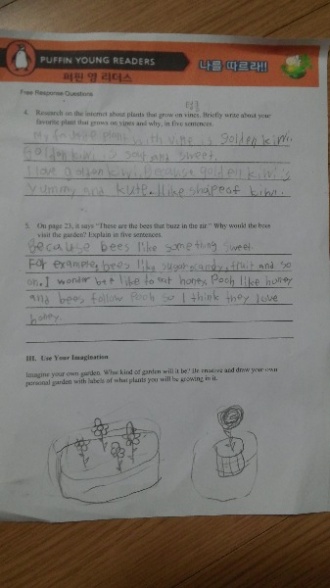 PUFFIN YOUNG READERS
퍼핀 영 리더스
나를 따르라!!
Free Response Questions
4. Research on the internet about plants that grow on vines. Briefly write about your
favorite plant that grows on vines and why, in five sentences.
My favorite plant with vine is golden kiwi.
Golden kiwi is sour and sweet.
I love golden kiwi, because golden kiwi is
yummy and kute. I like shape of kiwi.
5. On page 23, it says "These are the bees that buzz in the air." Why would the bees
visit the garden? Explain in five sentences.
Because bees like something sweet.
For example, bees like candy, fruit and so
on. I wonder like to eat honey. Pooh like honey
and bees follow Pooh so I think they love
honey.
III. Use Your Imagination
Imagine your own garden. What kind of garden will it be? Be creative and draw your own
personal garden with labels of what plants you will be growing in it.